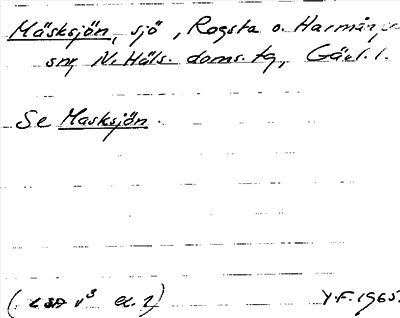 Mäsksjön, sjö, Rogsta o. Harmång
snr N. Häls. doms. tg, Gävl. l.
Se Masksjön.
v³ el. 2)
Y.F. 1965.